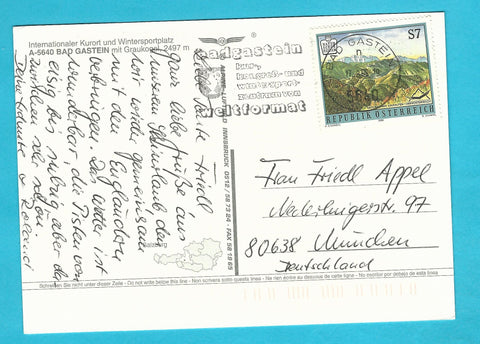 Internationaler Kurort und Wintersportplatz
A-5640 BAD GASTEIN mit Graukogel, 2497 m
Friedl
ganz liebe Grüße aus
unserem Skiurlaub den
wir wieder gemeinsam
mit den Engländern
verbringen. Das Wetter ist
wunderbar, die Pisten von
eisig bis sulzig aber das
u. Roland
badgastein
kur-,
kongreß- und
wintersport-
zentrum von
weltformat
BAD GASTEIN
5640
S7
REPUBLIK ÖSTERREICH
INNSBRUCK 0512/58 73 24 - FAX 58 19 65
Frau Friedl Appel
97
80638 München
Deutschland
Schreiben Sie nicht unter dieser Zeile - Do not write below this line - Non scrivere sotto questa linea - Ne rien écrire au dessous de cette ligne - No escribir por debajo de esta línea